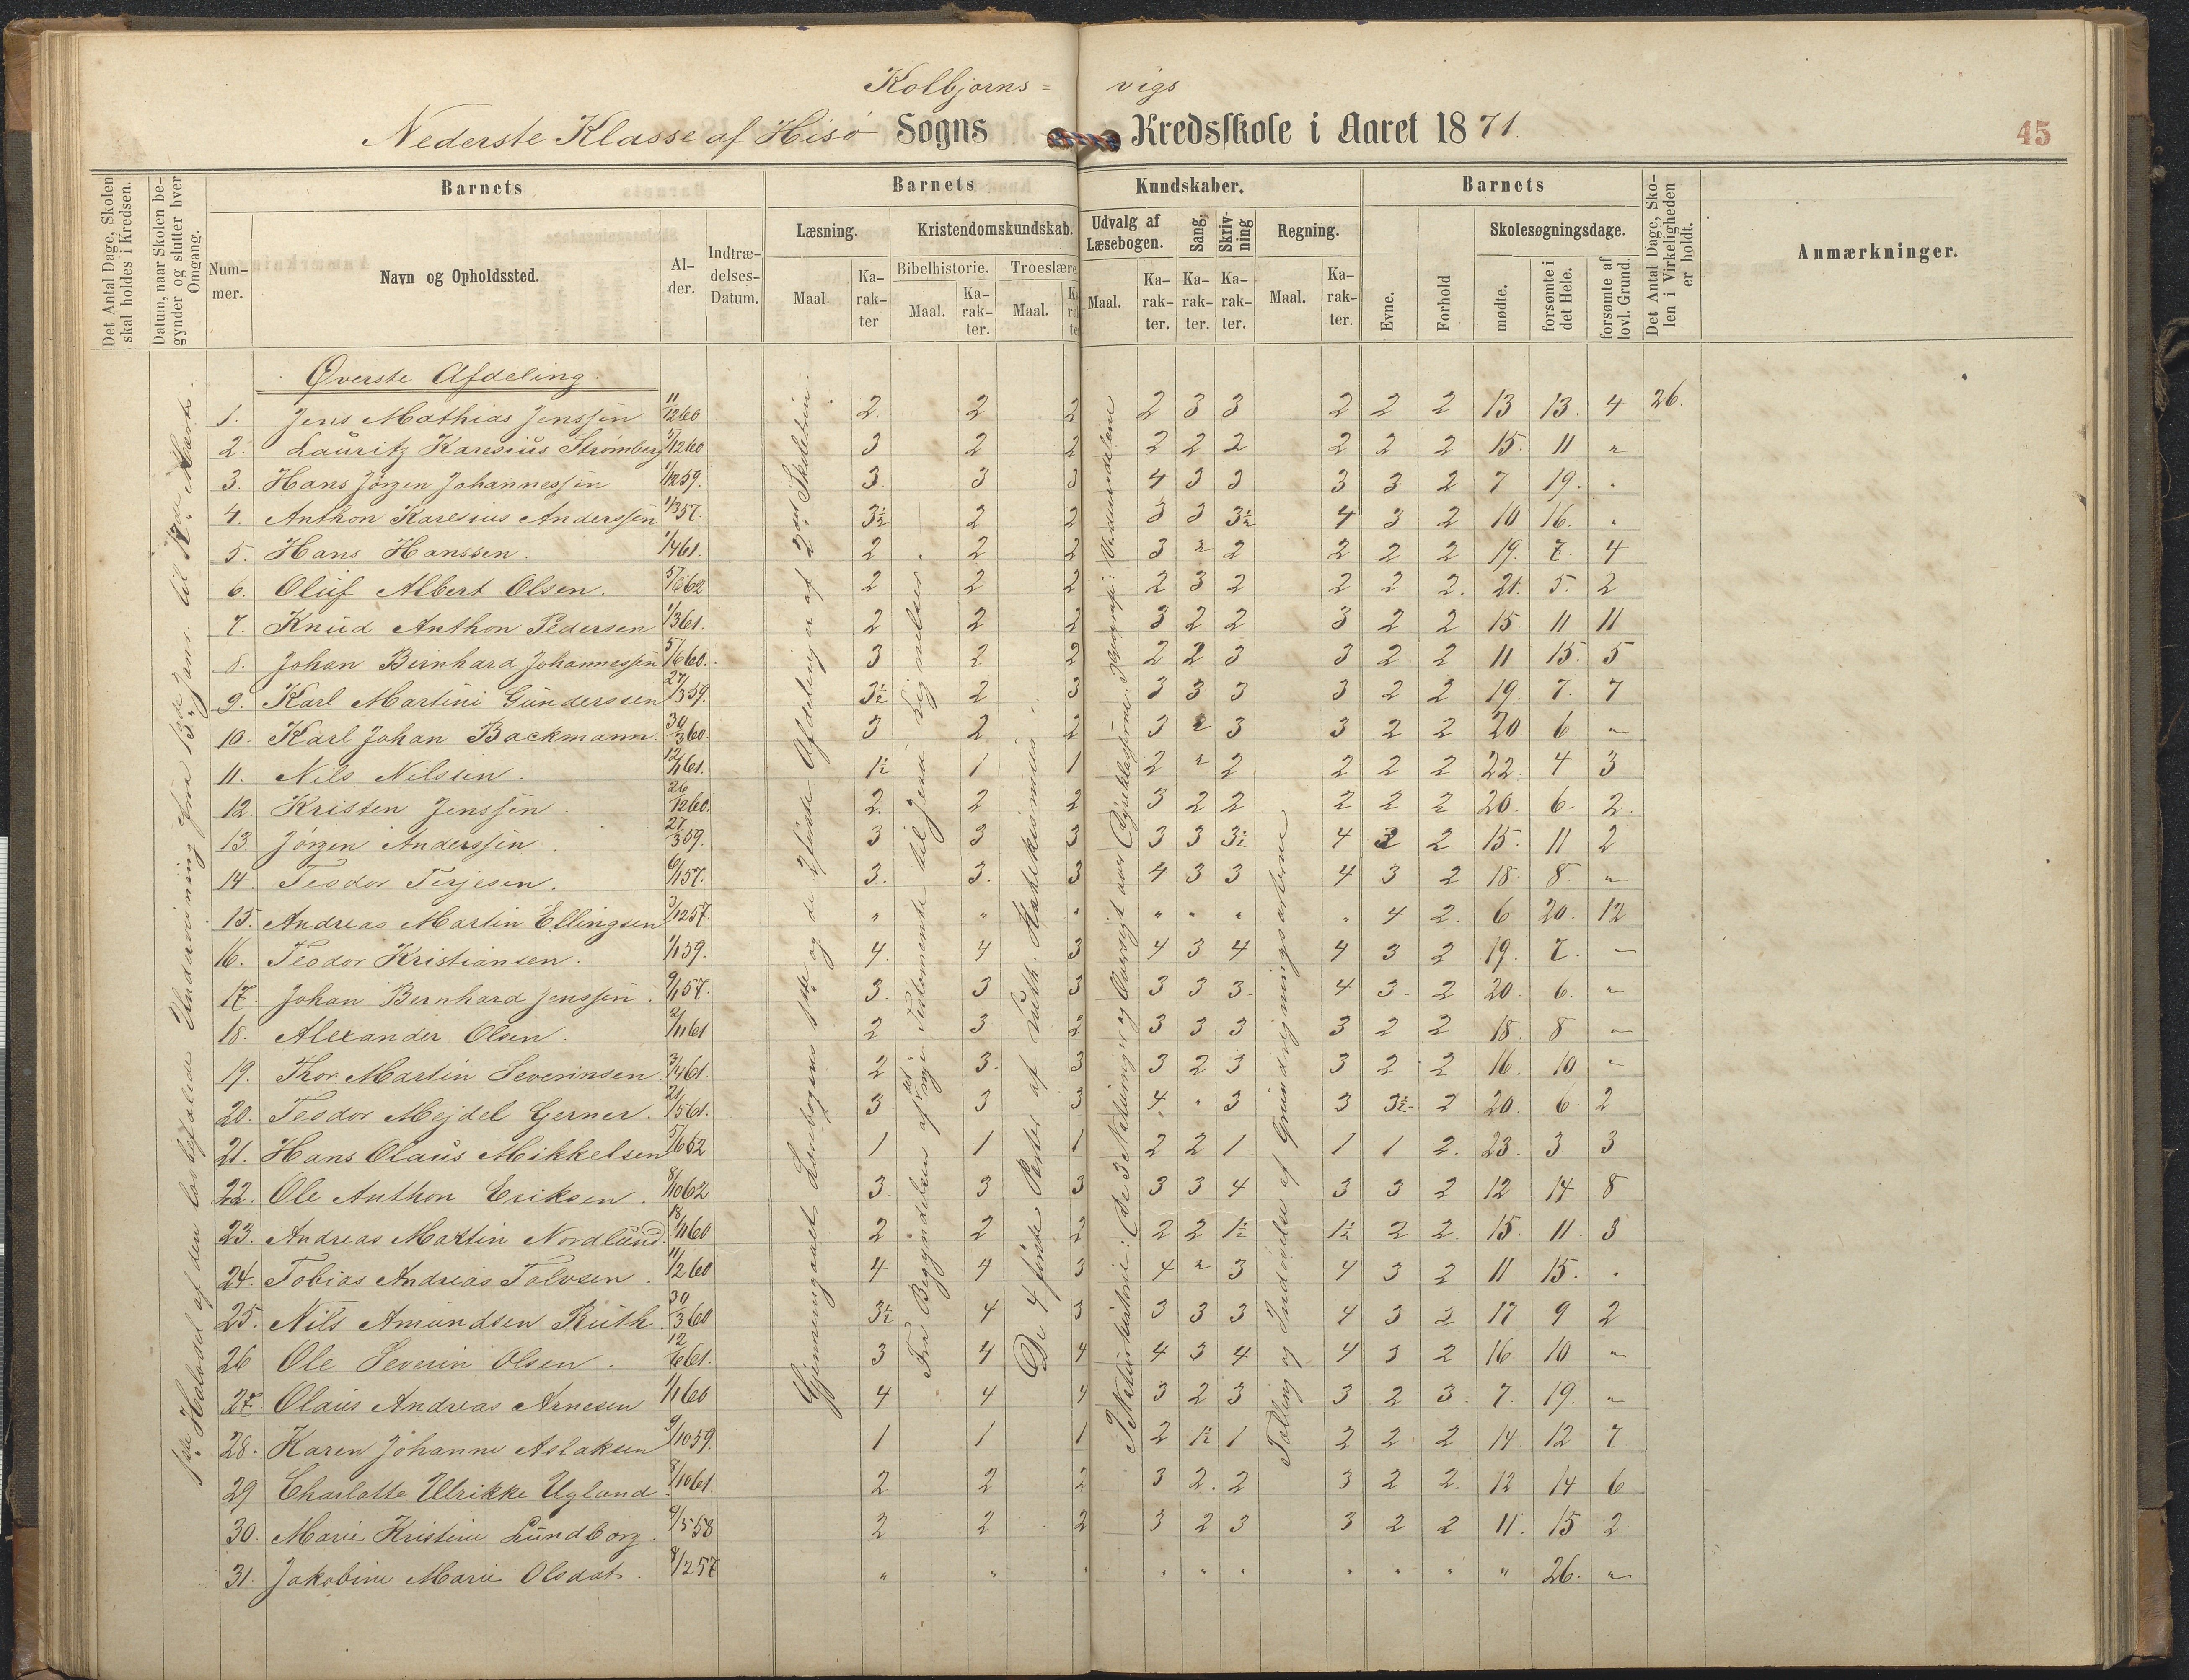 Kolbjørns= vigs
Nederste Klasse af Hisø Sogns Kredsskole i Aaret 1871.
45
Det Antal Dage, Skolen skal holdes i Kredsen.
Datum, naar Skolen begynder og slutter hver Omgang.
Barnets
Barnets Kundskaber.
Barnets
Det Antal Dage, Skolen i Virkeligheden er holdt.
Anmærkninger.
Nummer.
Navn og Opholdssted.
Alder.
Indtrædelses-Datum.
Læsning.
Kristendomskundskab.
Udvalg af Læsebogen.
Sang.
Skrivning
Regning.
Evne.
Forhold
Skolesøgningsdage.
Bibelhistorie.
Troeslære
Maal.
Karakter
Maal.
Karakter.
Maal.
Maal.
Karakter.
Karakter.
Karakter.
Maal.
Karakter.
mødte.
forsømte i det Hele.
forsømte af lovl. Grund.
Øverste Afdeling.
1. Jens Mathias Jenssen 11/12 60 2. 2 2 2 3 3 2 2 2 13 13. 4 26.
2. Lauritz Karesius Strømberg 5/12 60 3 2 2 2 2 2 2 2 2 15. 11 "
3. Hans Jørgen Johannessen 1/12 59. 3 3 3 4 3 3 3 3 2 7 19. "
4. Anthon Karesius Anderssen 1/3 57. 3½ 2 2 3 3 3½ 4 3 2 10 16. "
5. Hans Hanssen. 1/4 61. 2 2 2 3 " 2 2 2 2 19. 7. 4
6. Oluf Albert Olsen. 5/6 62 2 2 2 2 3 2 2 2 2. 21. 5. 2
7. Knud Anthon Pedersen 1/3 61. 2 2 2 3 2 2 3 2 2 15. 11 11
8. Johan Bernhard Johannessen 5/6 60. 3 2 2 2 2 3 3 2 2 11 15. 5
9. Karl Martini Gunderssen 27/3 59. 3½ 2 3 3 3 3 3 2 2 19. 7. 7
10. Karl Johan Backmann. 30/3 60. 3 2 2 3 " 3 3 2 2 20. 6 "
11. Nils Nilssen. 12/11 61. 1½ 1 1 2 " 2 2 2 2 22 4 3
12. Kristen Jenssen. 26/12 60. 2. 2 2 3 2 2 2 2 2 20. 6. 2.
13. Jørgen Anderssen. 27/3 59. 3 3 3 3 3 3½ 4 3 2 15. 11 2
14. Teodor Terjesen. 6/1 57. 3. 3. 3 4 3 3 4 3 2 18. 8. "
15. Andreas Martin Ellingsen 3/12 57. " " " " " " " 4 2. 6 20. 12
16. Teodor Kristiansen. 1/1 59. 4. 4 3 4 3 4 4 3 2 19. 7. "
17. Johan Bernhard Jenssen. 9/1 57. 3. 3 3 3 3 3. 4 3. 2 20. 6. "
18. Alexander Olsen. 2/11 61 2 3 2 3 3 3 3 2 2 18. 8 "
19. Thor Martin Severinsen 3/4 61. 2 3. 3 3 2 3 3 2 2 16. 10 "
20. Teodor Mejdel Gerner. 21/5 61. 3 3 3 4 " 3 3 3½ 2 20. 6 2
21. Hans Olaus Mikkelsen 5/6 62 1 1 1 2 2 1 1 1 2. 23. 3 3
22. Ole Anthon Eriksen. 8/10 62 3. 3 3 3 3 4 3 3 2 12 14 8
23. Andreas Martin Nordlund. 18/11 60 2 2 2 2 2 1½ 1½ 2 2. 15. 11. 3
24. Tobias Andreas Tolvsen. 11/2 60 4 4 3 4 " 3 4 3 2 11 15. "
25. Nils Amundsen Ruth. 30/3 60 3½ 4 3 3 3 3 4 3 2 17 9 2
26 Ole Severin Olsen. 12/6 61. 3 4 4 4 3 4 4 3 2 16 10 "
27. Olaus Andreas Arnesen 1/1 60 4 4 4 3 2 3 3 2 3. 7. 19. "
28. Karen Johanne Aslaksen 9/10 59. 1 1 1 2 1½ 1 2 2 2 14. 12 7
29 Charlotte Ulrikke Ugland. 8/10 61. 2 2 2 3 2. 2 3 2 2. 12 14 6
30. Marie Kristine Lundborg. 9/5 58 2 2 2 3 2 3 3 2 2 11. 15 2
31. Jakobine Marie Olsdat. 8/12 57 " " " " " " " " " " 26. "
1ste Halvdel af den lovbefalede Undervisning fra 13de Janr. til
Gjennemgaaet Læsebogens 1ste og de første Afdeling er af 2det Skoletrin.
Fra Begyndelsen af nye Testamente til Jesu Lignelser
De 4 første Parter af Luth. Katekismus.
I Naturhistorie: De 3 Naturriger og Oversigt over Dyreklasserne. Geografi: Verdensdelene
Tælling og Indøvelse af Grundregningsarterne